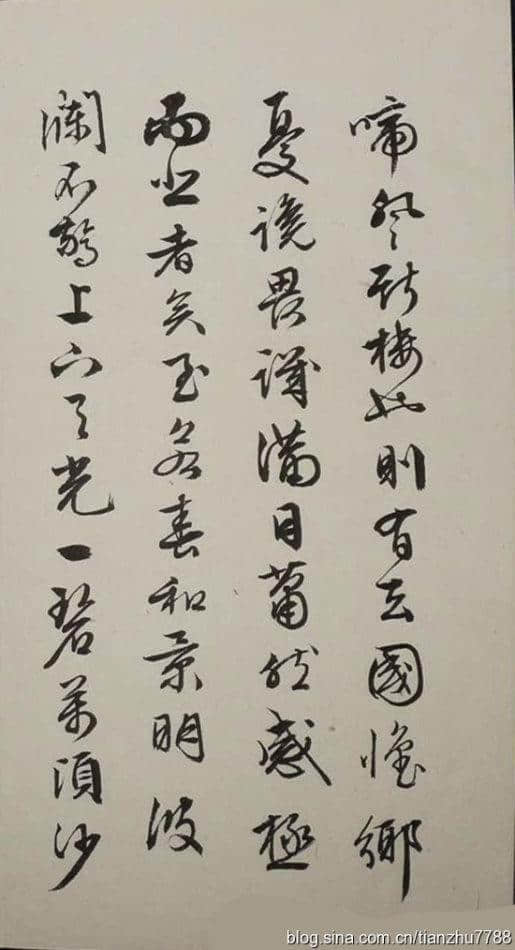 啼登斯樓也則有去國懷鄉
憂讒畏譏滿目蕭然感極
而悲者矣至若春和景明波
瀾不驚上下天光一碧萬頃沙
blog.sina.com.cn/tianzhu7788